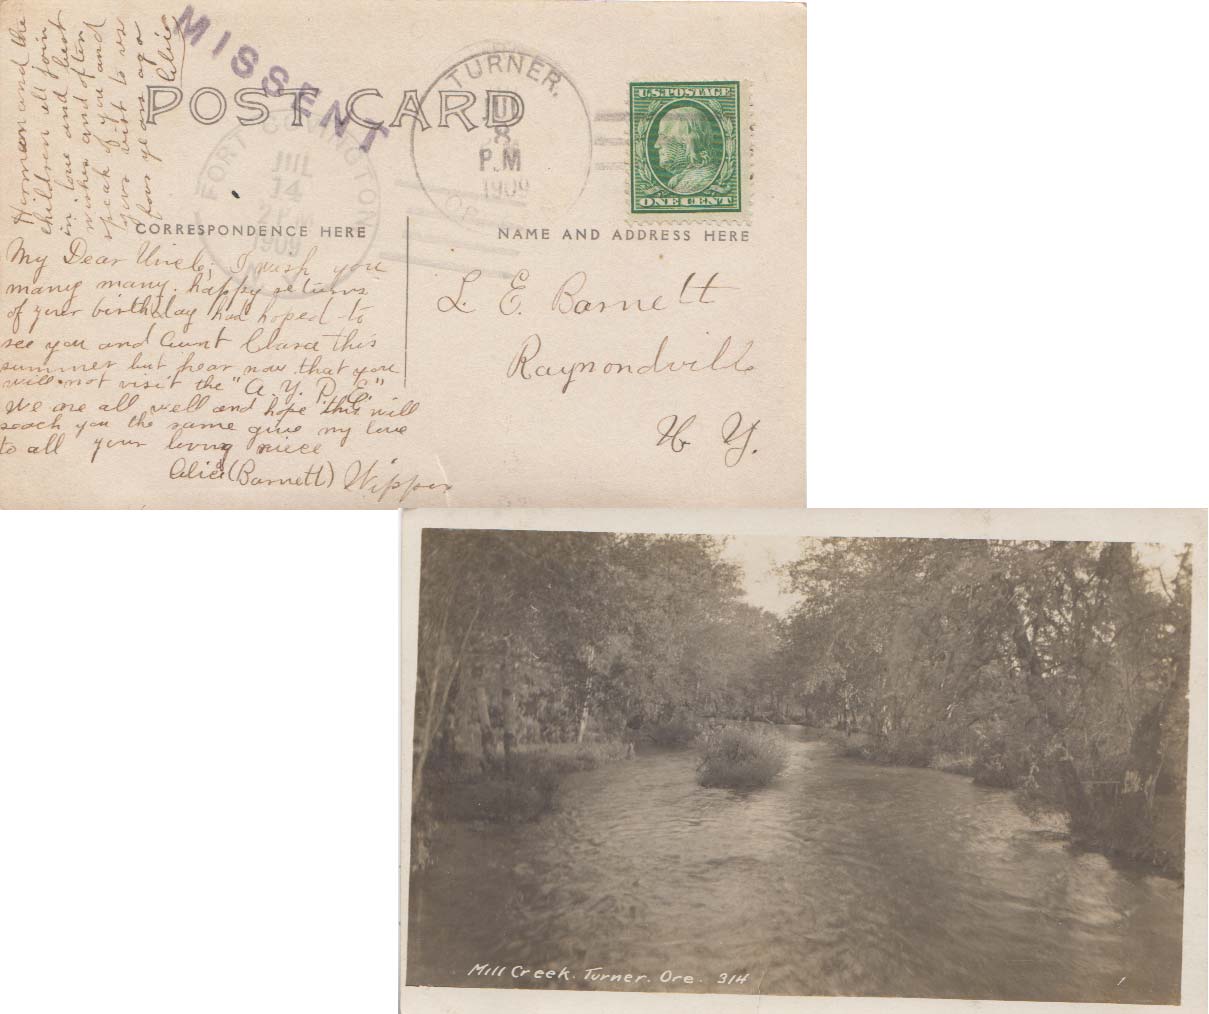 Homan and the
children all join
in love and best
wishes and often
speak of you and
your visit to us
four years ago
Alice
MISSENT
POST CARD
TURNER,
JUL
8
P.M
1909
OREG
U.S. POSTAGE
ONE CENT
FORT COVINGTON
JUL
14
2 PM
1909
N.Y.
CORRESPONDENCE HERE
NAME AND ADDRESS HERE
My Dear Uncle; I wish you
many many happy returns
of your birthday had hoped to
see you and Aunt Clara this
summer but fear now that you
will not visit the "A. Y. P. E."
We are all well and hope this will
reach you the same give my love
to all your loving niece
Alice (Barnett) Wipper
L. E. Barnett
Raymondville
N. Y.
Mill Creek. Turner. Ore. 314
1